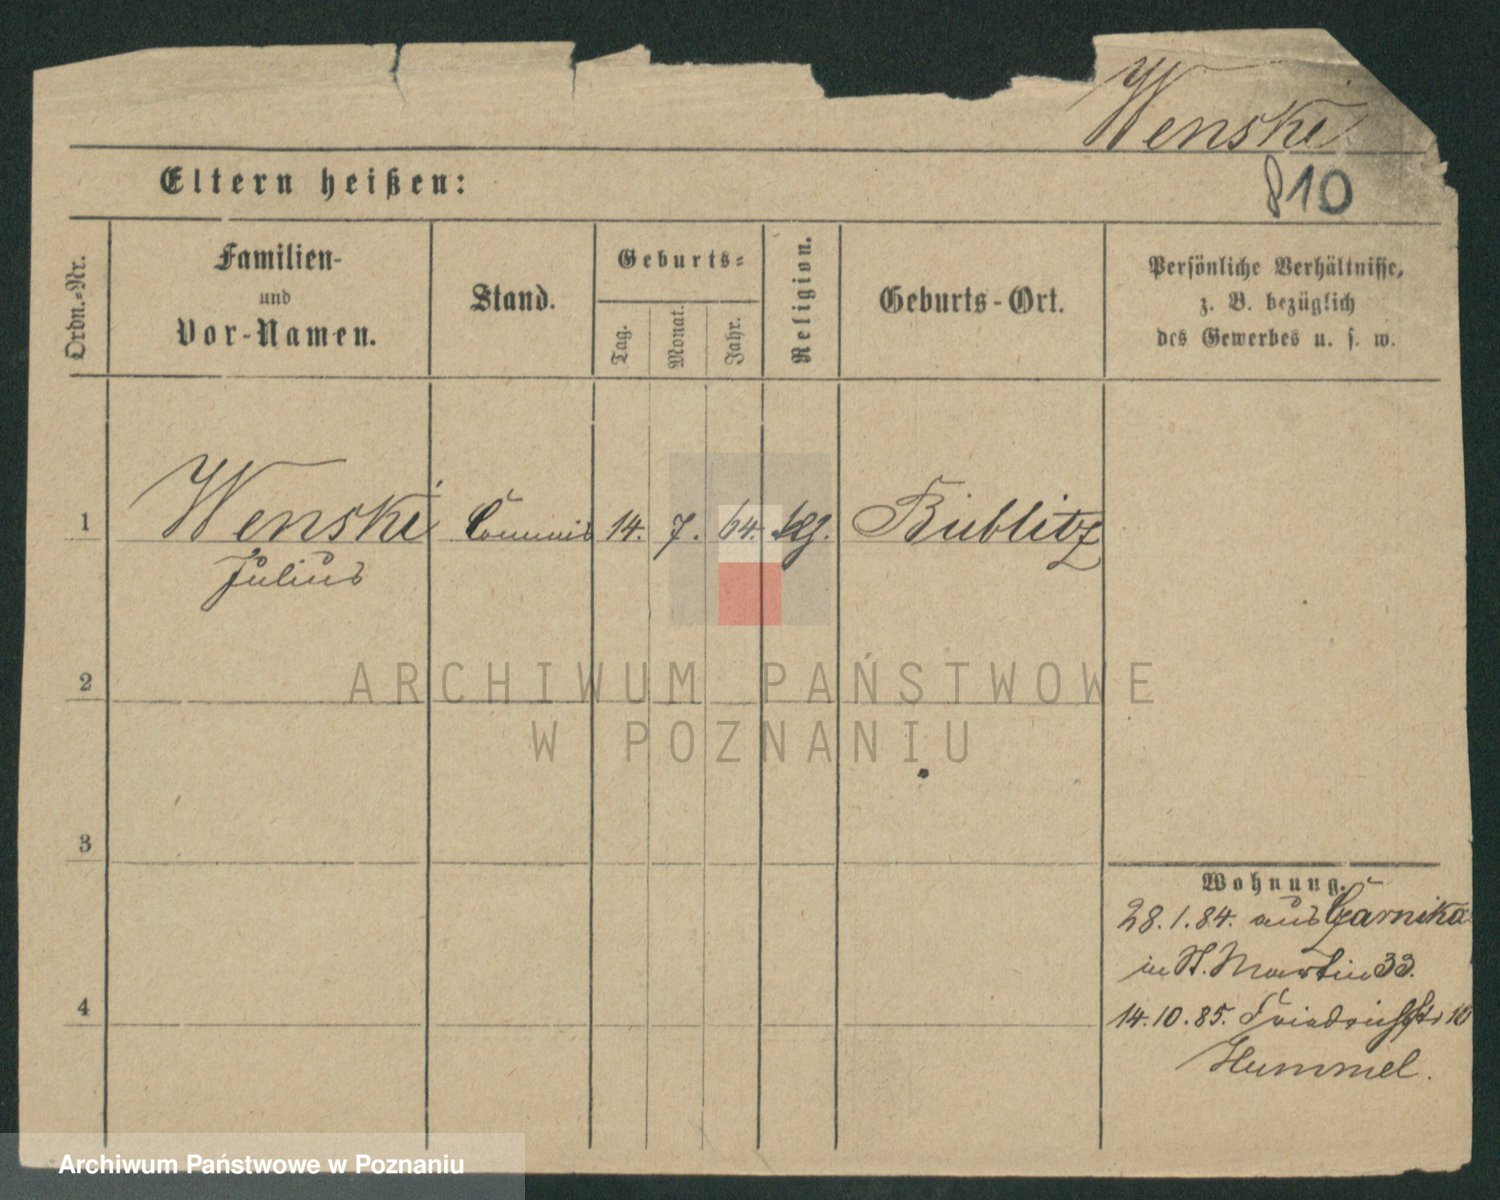 Wenski
810
Eltern heißen:
Ordn.-Nr.
Familien-
und
Vor-Namen.
Stand.
Geburts-
Tag.
Monat.
Jahr.
Religion.
Geburts-Ort.
Persönliche Verhältnisse,
z. B. bezüglich
des Gewerbes u. s. w.
1
Wenski Commis 14. 7. 64. Bublitz
Julius
2
ARCHIWUM PAŃSTWOWE
W POZNANIU
3
Wohnung.
28.1.84. aus Czarnikau
in St. Martin 33.
4
14.10.85. Friedrichstr 10
Hummel.
Archiwum Państwowe w Poznaniu